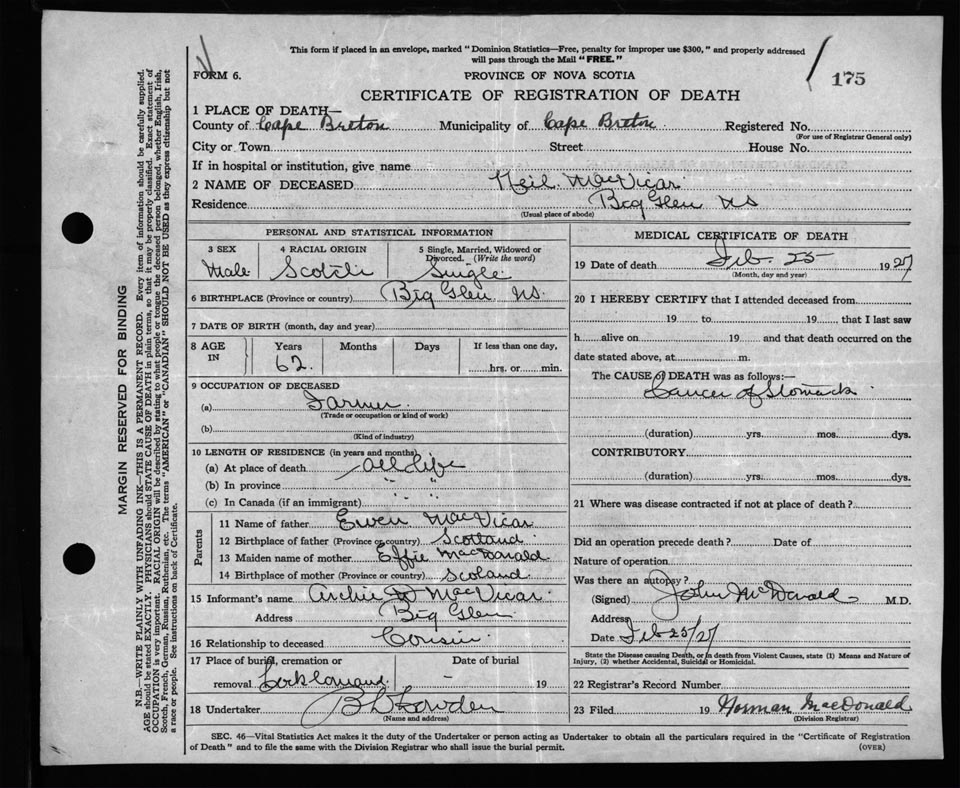 This form if placed in an envelope, marked "Dominion Statistics—Free, penalty for improper use $300," and properly addressed
will pass through the Mail "FREE."
FORM 6.
PROVINCE OF NOVA SCOTIA
175
CERTIFICATE OF REGISTRATION OF DEATH
1 PLACE OF DEATH—
County of Cape Breton Municipality of Cape Breton Registered No.
(For use of Registrar General only)
City or Town Street House No.
If in hospital or institution, give name
2 NAME OF DECEASED Neil MacVicar
Residence Big Glen NS
(Usual place of abode)
PERSONAL AND STATISTICAL INFORMATION
3 SEX 4 RACIAL ORIGIN 5 Single, Married, Widowed or
Divorced. (Write the word)
Male Scotch Single
6 BIRTHPLACE (Province or country) Big Glen NS.
7 DATE OF BIRTH (month, day and year)
8 AGE IN Years Months Days If less than one day,
62 hrs. or min.
9 OCCUPATION OF DECEASED
(a) Farmer
(Trade or occupation or kind of work)
(b)
(Kind of industry)
10 LENGTH OF RESIDENCE (in years and months)
(a) At place of death All Life
(b) In province " "
(c) In Canada (if an immigrant) " "
Parents
11 Name of father Ewen MacVicar
12 Birthplace of father (Province or country) Scotland
13 Maiden name of mother Effie MacDonald
14 Birthplace of mother (Province or country) Scoland
15 Informant's name Archie MacVicar
Address Big Glen
16 Relationship to deceased Cousin
17 Place of burial, cremation or Date of burial
removal — 19
18 Undertaker
(Name and address)
MEDICAL CERTIFICATE OF DEATH
19 Date of death Feb. 25 1927
(Month, day and year)
20 I HEREBY CERTIFY that I attended deceased from
19 to 19 that I last saw
h alive on 19 and that death occurred on the
date stated above, at m.
The CAUSE of DEATH was as follows:—
Cancer of Stomach
(duration) yrs. mos. dys.
CONTRIBUTORY
(duration) yrs. mos. dys.
21 Where was disease contracted if not at place of death?
Did an operation precede death? Date of
Nature of operation
Was there an autopsy?
(Signed) John McDonald M.D.
Address
Date Feb 25/27
State the Disease causing Death, or in death from Violent Causes, state (1) Means and Nature of
Injury, (2) whether Accidental, Suicidal or Homicidal.
22 Registrar's Record Number
23 Filed 19 Norman MacDonald
(Division Registrar)
SEC. 46—Vital Statistics Act makes it the duty of the Undertaker or person acting as Undertaker to obtain all the particulars required in the "Certificate of Registration
of Death" and to file the same with the Division Registrar who shall issue the burial permit.
(OVER)
MARGIN RESERVED FOR BINDING
N.B.—WRITE PLAINLY WITH UNFADING INK—THIS IS A PERMANENT RECORD. Every item of information should be carefully supplied.
AGE should be stated EXACTLY. PHYSICIANS should STATE CAUSE OF DEATH in plain terms, so that it may be properly classified. Exact statement of
OCCUPATION is very important. RACIAL ORIGIN will be described by stating to what people or tongue the deceased person belonged, whether English, Irish,
Scotch, French, German, Russian, Ruthenian, etc. The terms "AMERICAN" or "CANADIAN" SHOULD NOT BE USED as they express citizenship but not
a race or people. See instructions on back of Certificate.